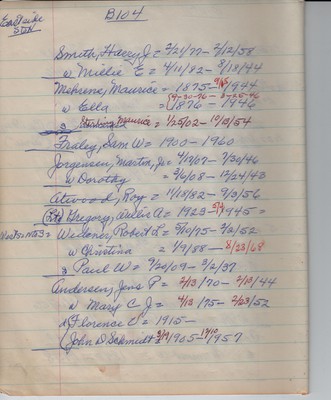 Eastside
B104
Smith, Harry J = 2/21/77 - 2/12/58
w Millie E = 4/11/82 - 8/18/44
Mehrene, Maurice = 1875 - 9/8/1944
(9-30-76 - 8-25-46
w Ella = (1876 - 1946
s Maurice = 1/25/02 - 10/18/54
Fraley, Sam W = 1900 - 1960
Jorgensen, Martin, Jr = 4/19/67 - 7/30/46
w Dorothy = 3/6/08 - 12/24/43
Atwood, Roy = 11/18/82 - 9/3/56
Gregory, Aulis A = 1923 - 1945 =
Robert L = 5/10/75 - 7/2/52
w Christina = 1/9/88 - 8/23/68
s Paul W = 9/20/09 - 3/2/37
Andersen, Jens P = 2/13/70 - 2/10/44
w Mary C J = 4/12/75 - 2/23/52
d (Florence C = 1915 -
(John D Schmidt = 3/19/1905 - 11/10/1957